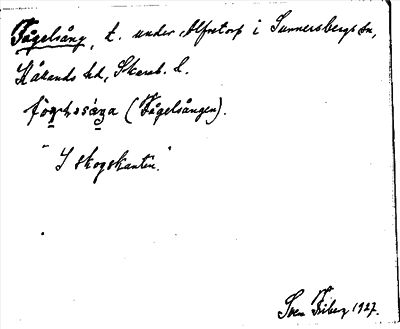 Fågelsång, t. under Alfretorp i Sunnersbergs sn,
Kålands hd, Skarab. l.
(Fågelsången).
"I skogskanten."
Sven Friberg 1927.